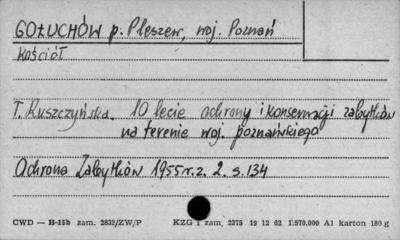 GOŁUCHÓW p. Pleszew, woj. Poznań
Kościół
T. Ruszczyńska. 10 lecie ochrony i konserwacji zabytków
na terenie woj. poznańskiego
Ochrona Zabytków 1955 r. z. 2. s. 134
CWD — B-15b zam. 2832/ZW/P KZG 1 zam. 2375 19 12 62 1.570.000 A1 karton 180 g